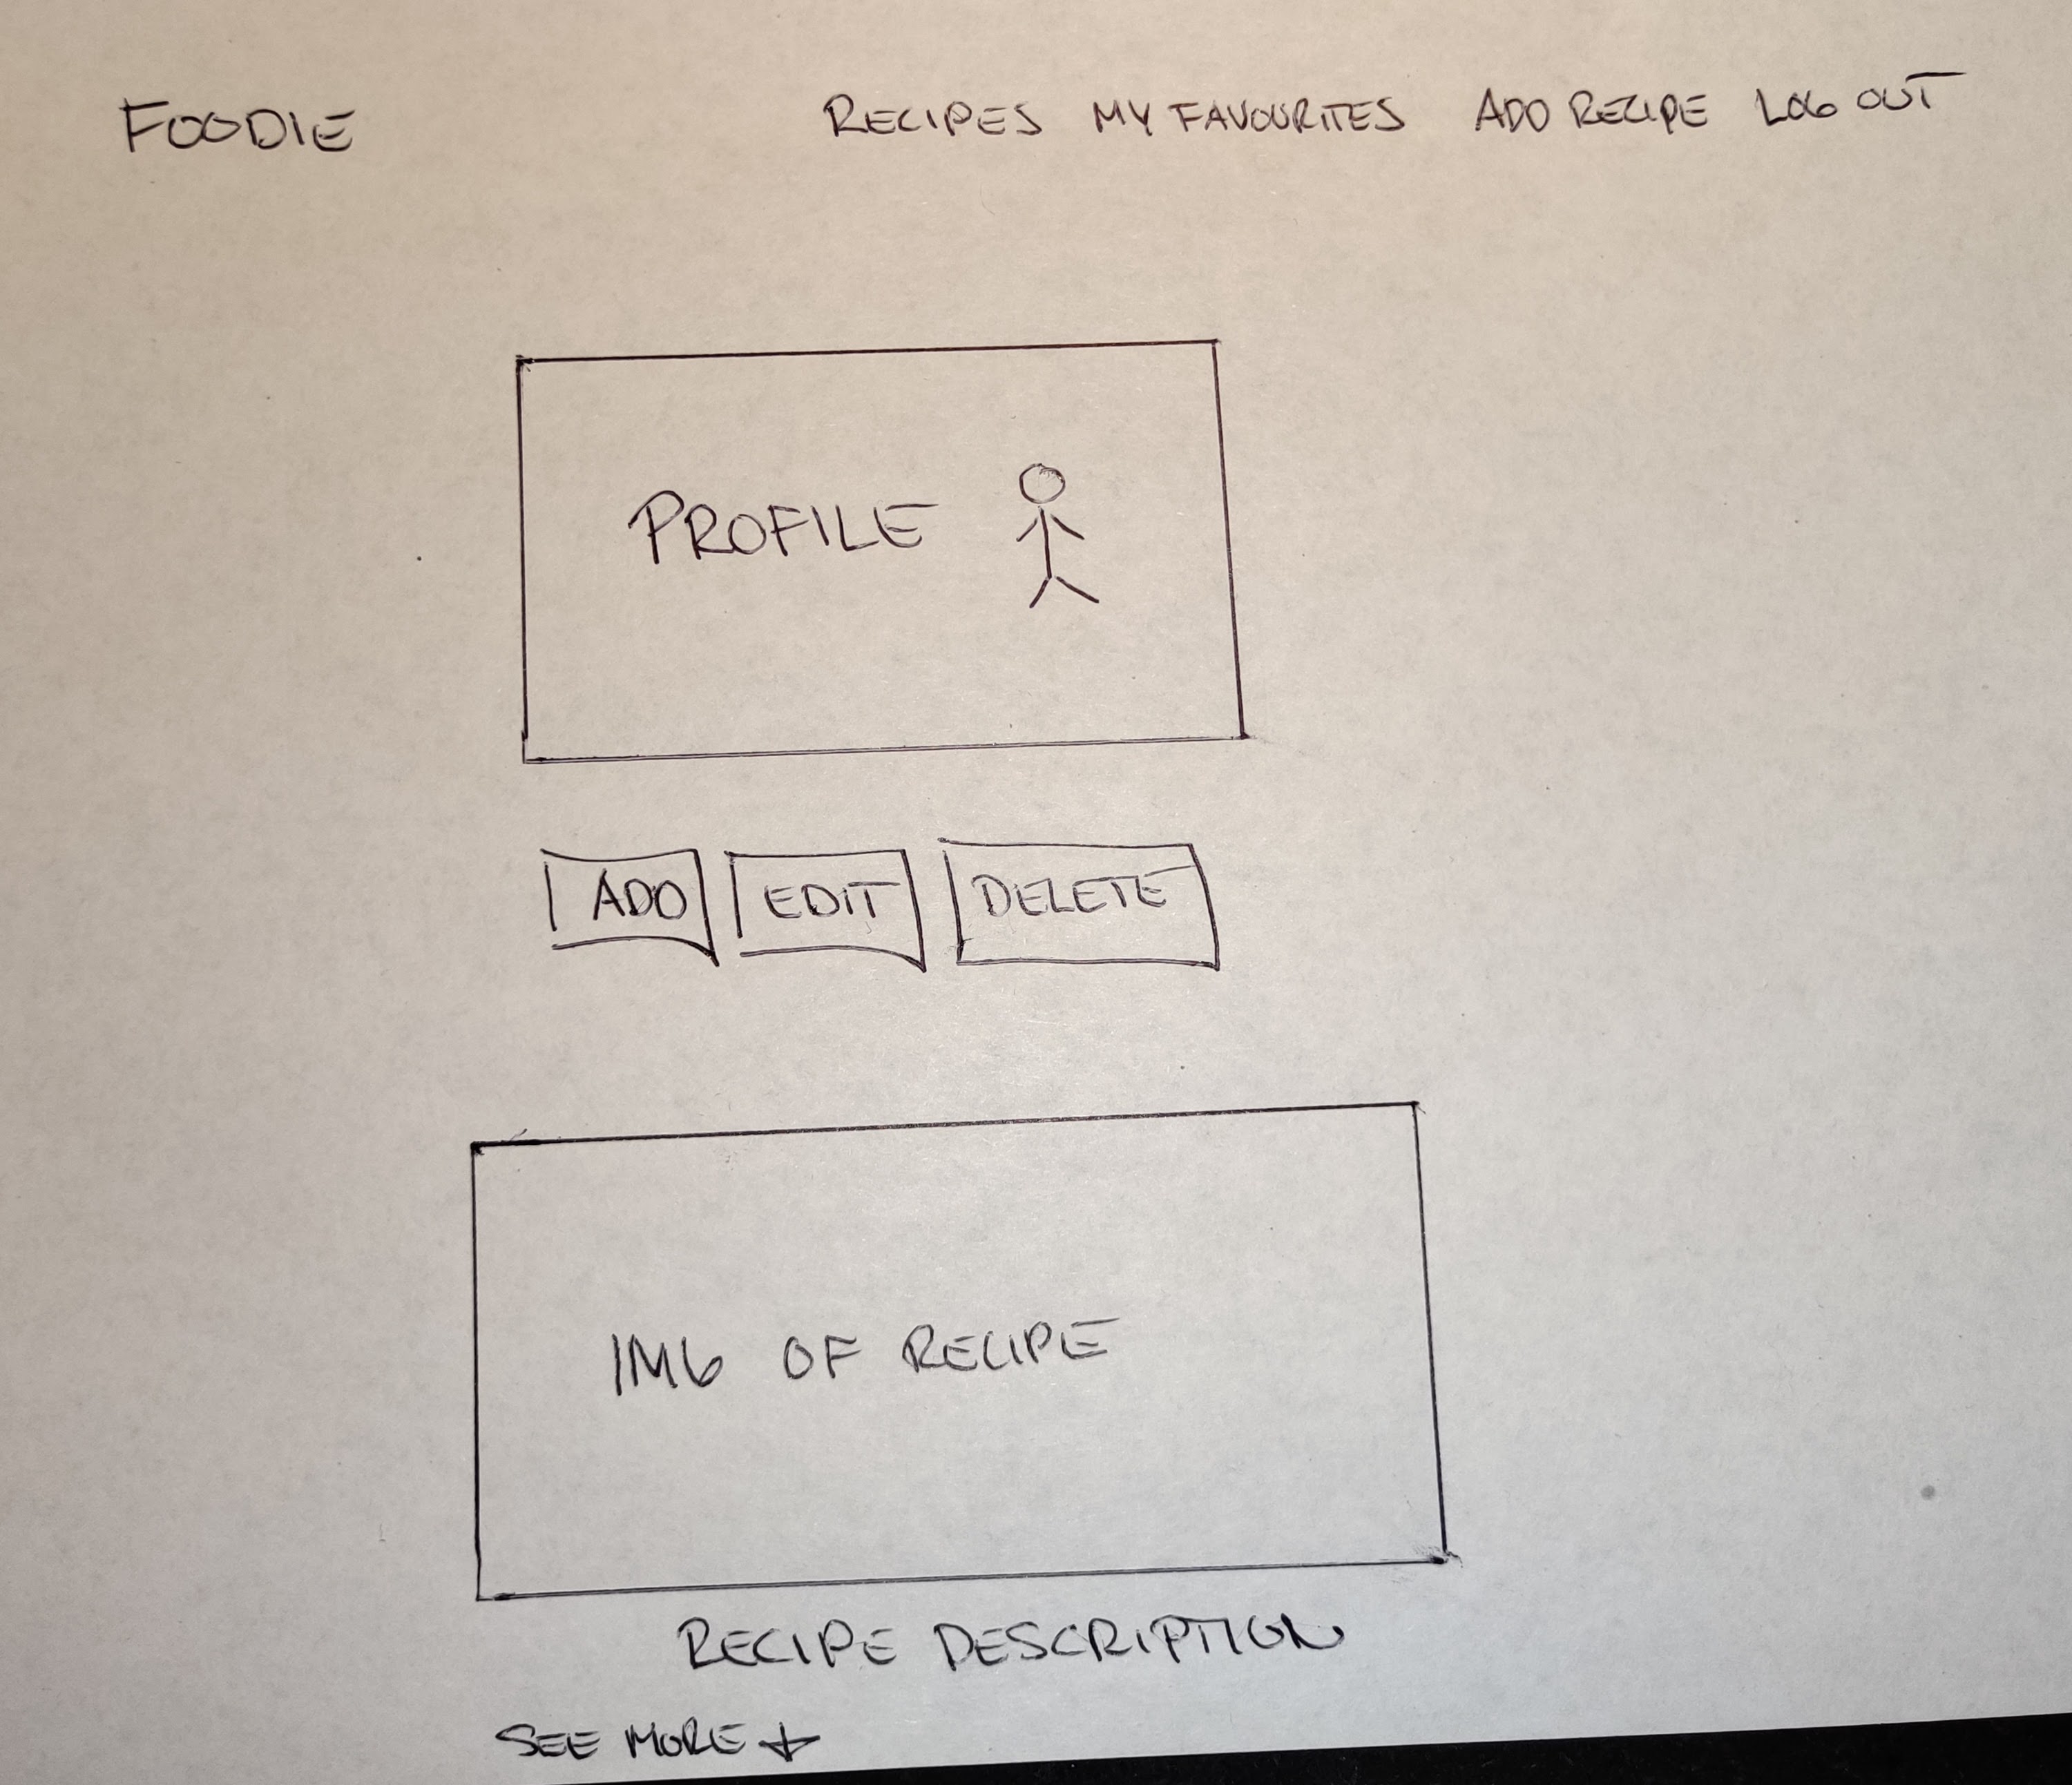 FOODIE RECIPES MY FAVOURITES ADD RECIPE LOG OUT
PROFILE
ADD EDIT DELETE
IMG OF RECIPE
RECIPE DESCRIPTION
SEE MORE ↓